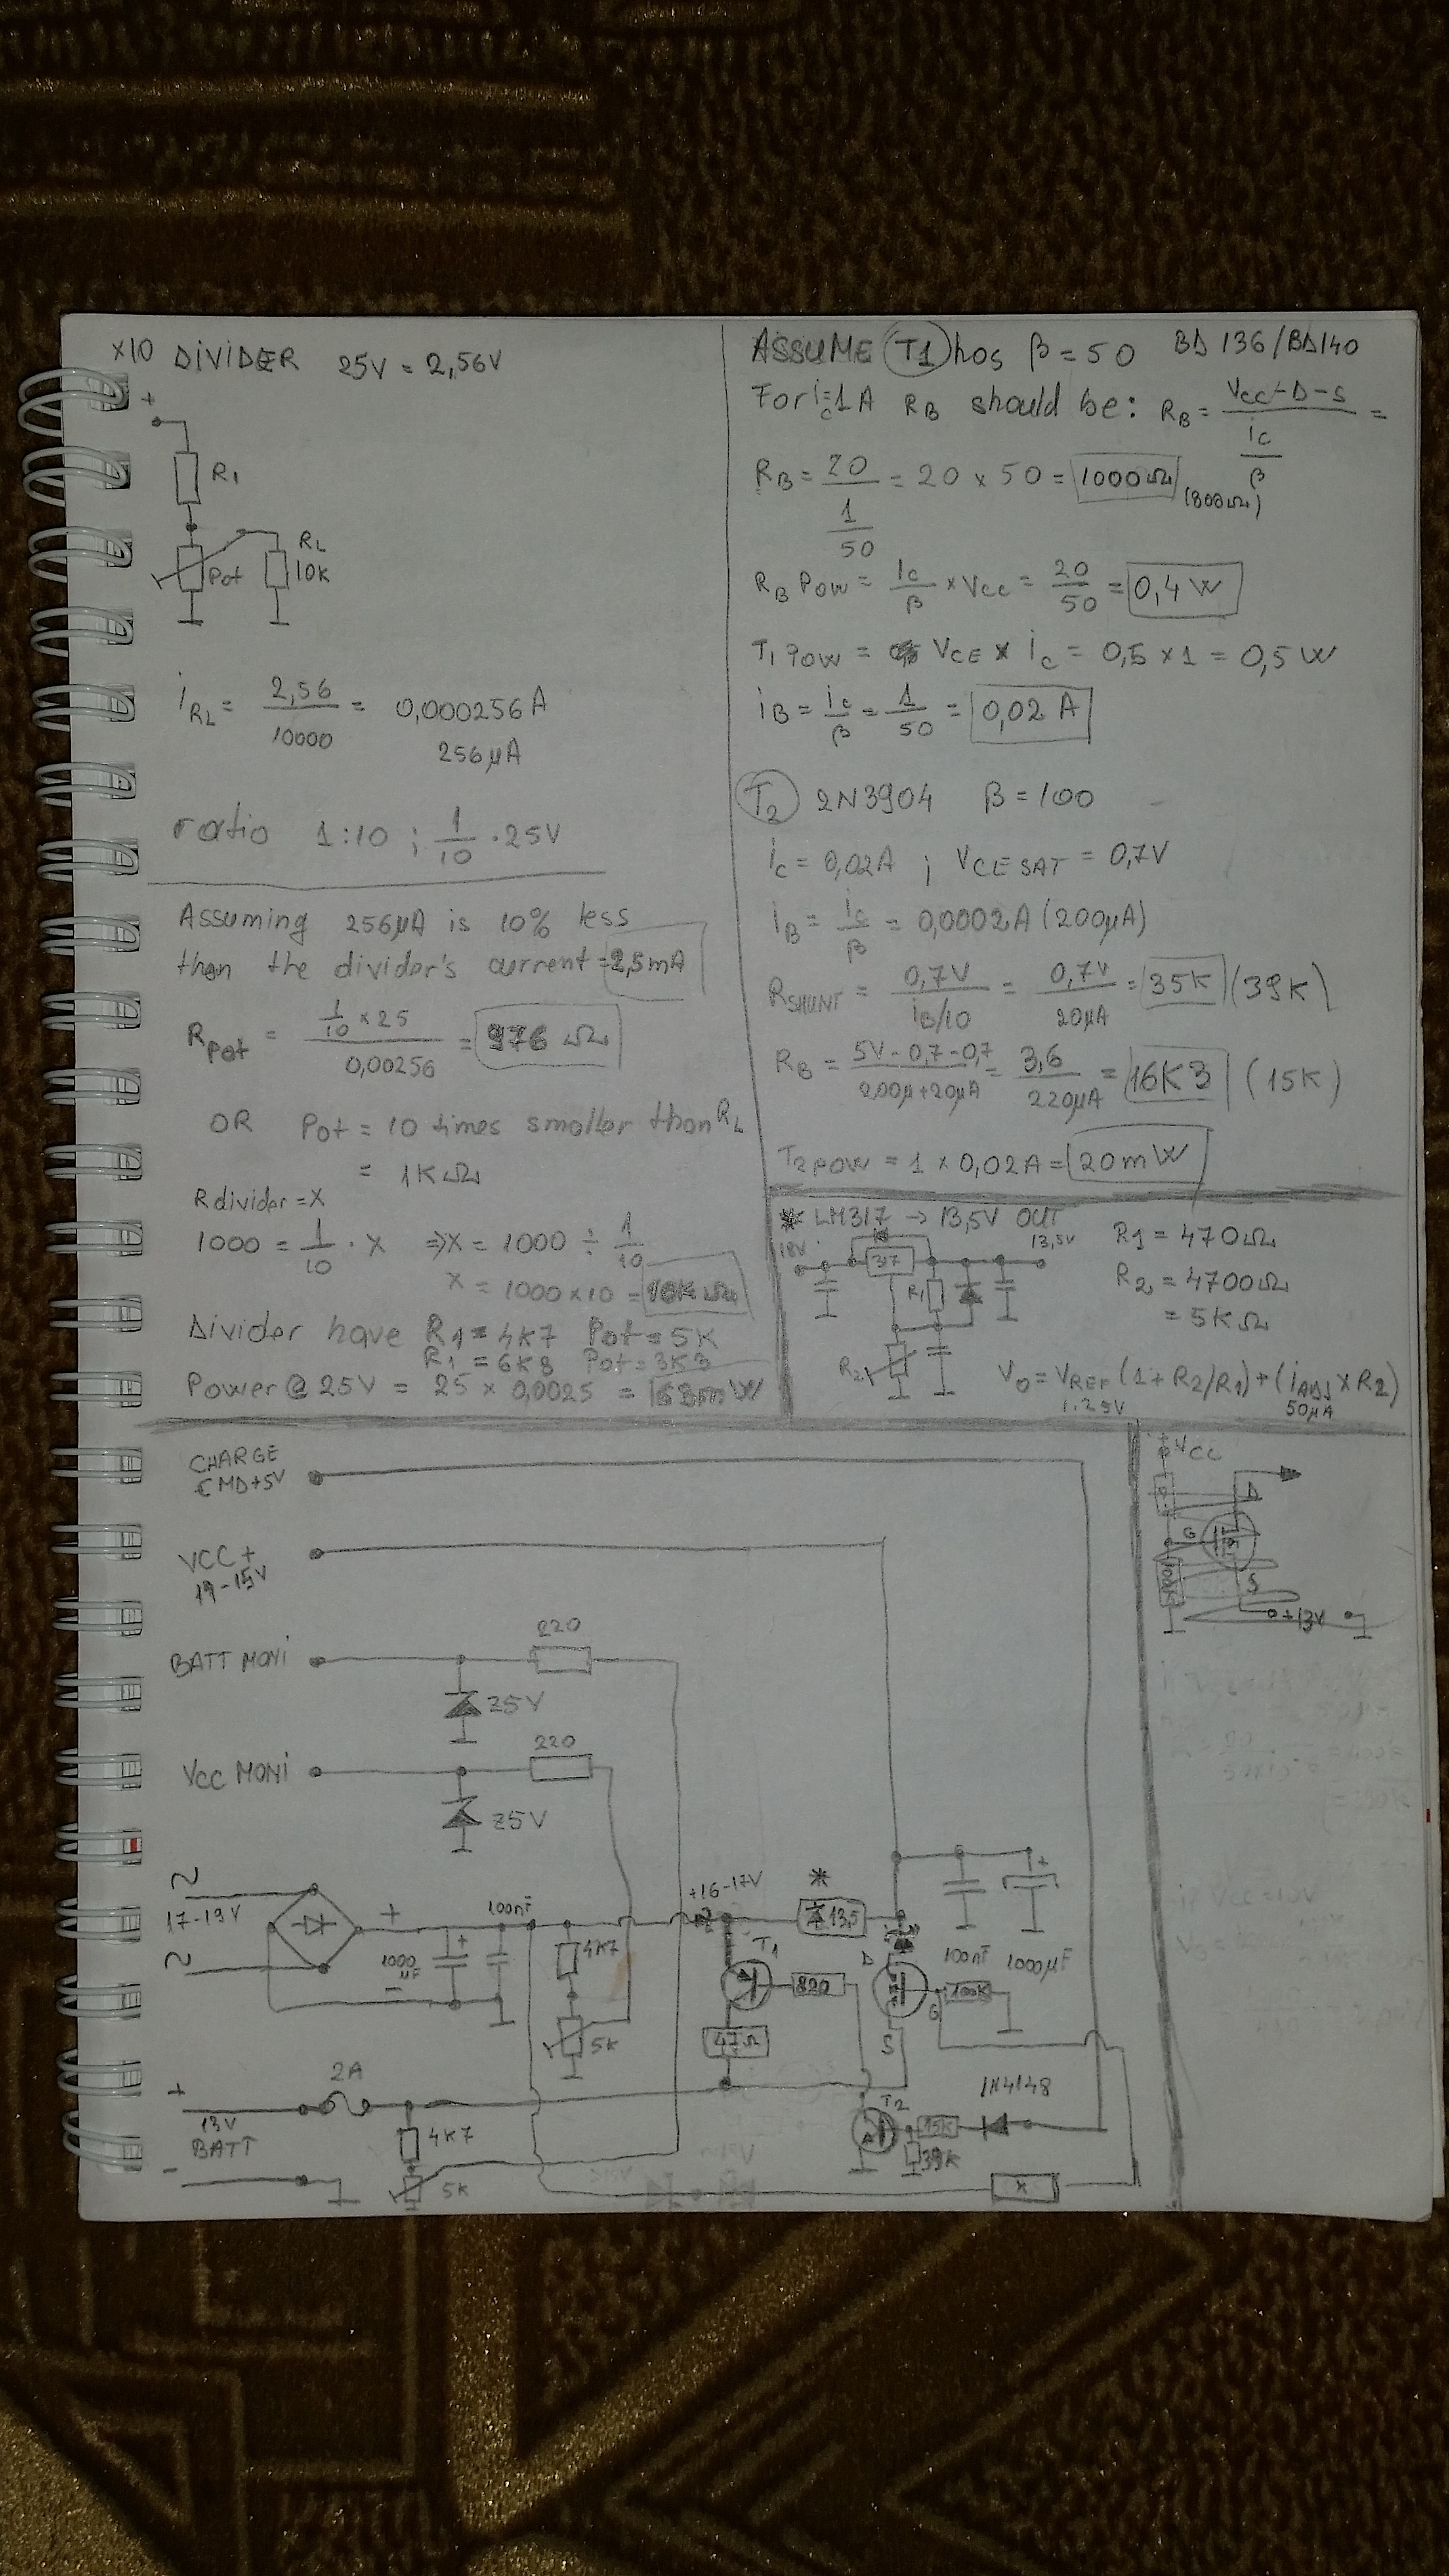 x10 DIVIDER 25V = 2,56V
+
R1
Pot
RL
10K
iRL = 2,56 / 10000 = 0,000256A
256µA
ratio 1:10 ; 1/10 · 25V
Assuming 256µA is 10% less
than the divider's current = 2,5mA
Rpot = 1/10 × 25 / 0,00256 = 976 Ω
OR Pot = 10 times smaller than RL
= 1KΩ
Rdivider = X
1000 = 1/10 · X ⇒ X = 1000 ÷ 1/10
X = 1000×10 = 10KΩ
Divider have R1 = 4K7 Pot = 5K
R1 = 6K8 Pot = 3K3
Power @ 25V = 25 × 0,0025 = 63mW
ASSUME T1 has β = 50 BD 136/BD140
For ic=1A RB should be: RB = VCC-D-S / ic/β =
RB = 20 / 1/50 = 20 × 50 = 1000Ω (800Ω)
RB POW = ic/β × VCC = 20/50 = 0,4W
T1 POW = VCE × ic = 0,5 × 1 = 0,5W
iB = ic/β = 1/50 = 0,02 A
T2 2N3904 β = 100
ic = 0,02A ; VCE SAT = 0,7V
iB = ic/β = 0,0002A (200µA)
RSHUNT = 0,7V / iB/10 = 0,7V / 20µA = 35K (39K)
RB = 5V - 0,7 - 0,7 / 200µ+20µA = 3,6 / 220µA = 16K3 (15K)
T2 POW = 1 × 0,02A = 20mW
* LM317 → 13,5V OUT
18V
317
13,5V
R1
R2
R1 = 470Ω
R2 = 4700Ω
= 5KΩ
VO = VREF (1 + R2/R1) + (iADJ × R2)
1.25V
50µA
CHARGE
CMD+5V
VCC+
19-15V
BATT MONI
220
Z5V
VCC MONI
220
Z5V
~
17-19V
~
+
1000
µF
+
-
100nF
4K7
5K
+16-17V
T1
820
47Ω
*
13,5
D
G
S
100K
100nF
1000µF
+
+
13V
BATT
-
2A
4K7
5K
T2
15K
39K
1N4148
*
+VCC
D
G
S
100K
+13V